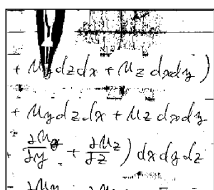 + u_y dz dx + u_z dx dy )
+ u_y dz dx + u_z dx dy
∂u_y/∂y + ∂u_z/∂z ) dx dy dz